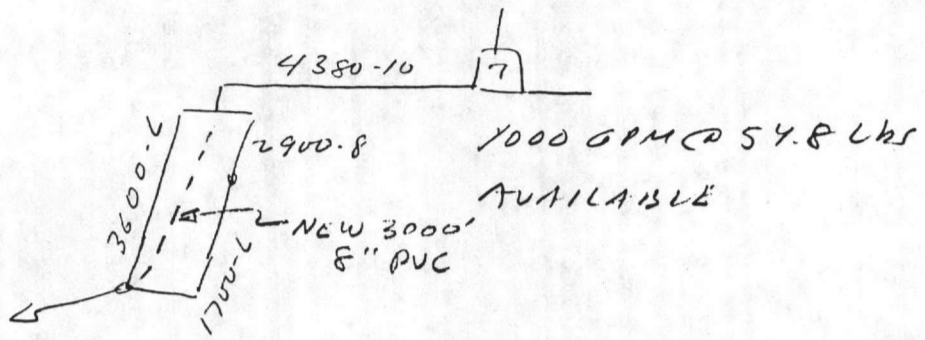 4380-10
7
3600-6
2900-8
1000 GPM @ 54.8 Lbs
AVAILABLE
NEW 3000'
8" PVC
1700-6